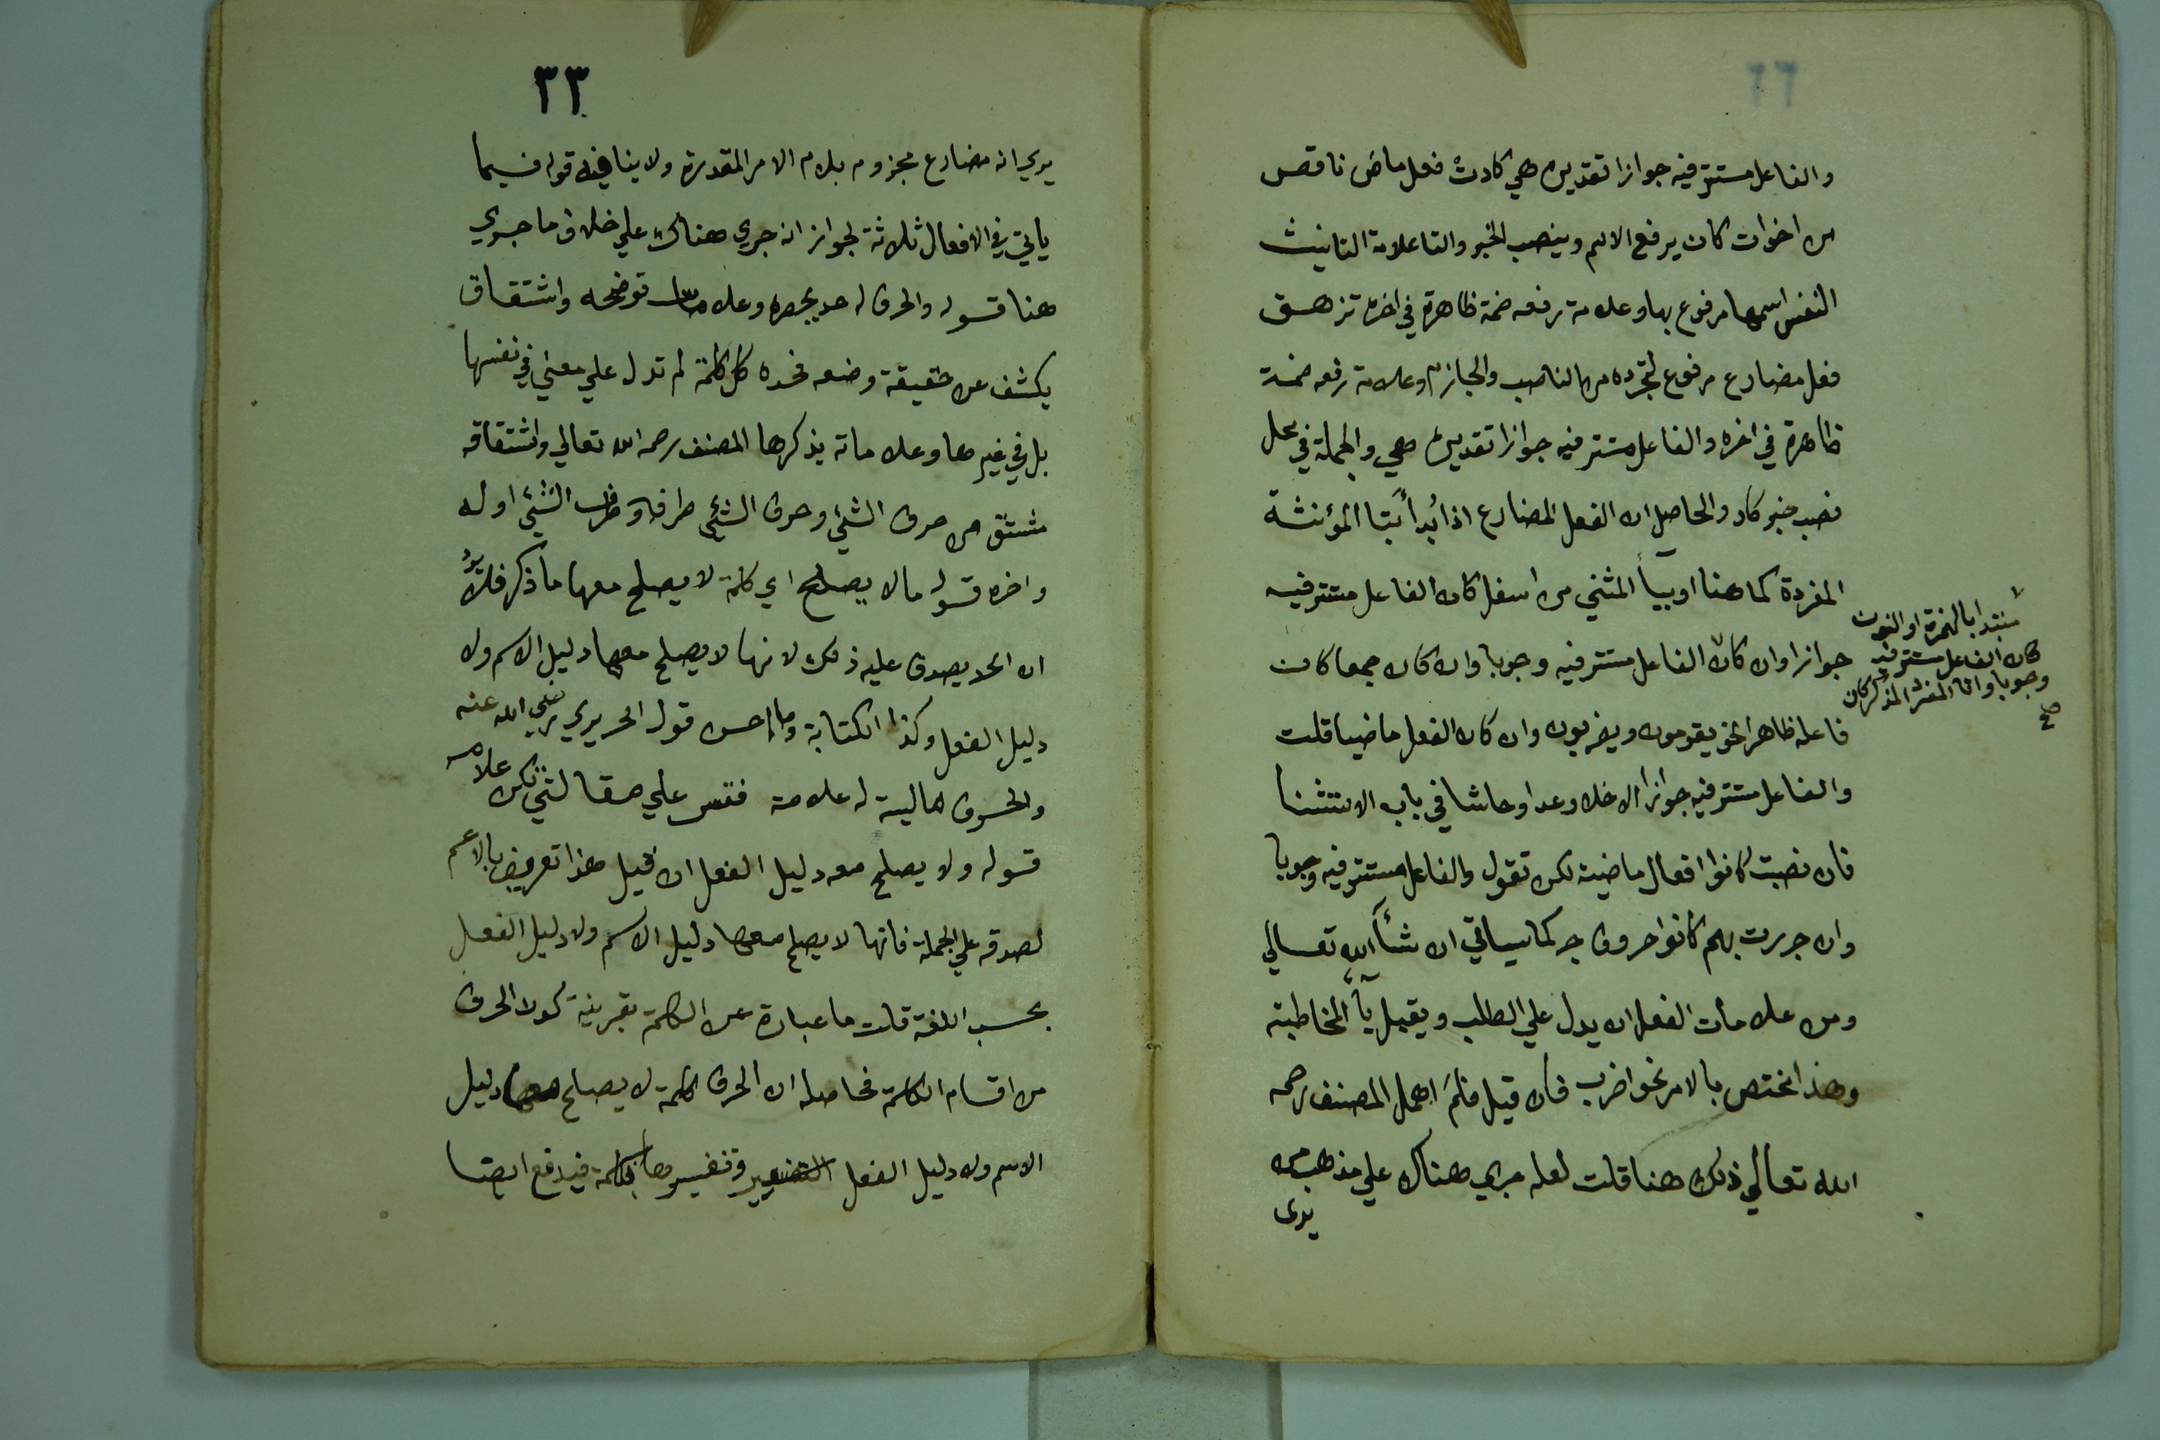 والفاعل مستتر فيه جوازا تقديره هي كادت فعل ماض ناقص
من اخوات كان يرفع الاسم وينصب الخبر والتا علامة التانيث
النفس اسمها مرفوع بها وعلامة رفعه ضمة ظاهرة في اخره تزهق
فعل مضارع مرفوع لتجرده من الناصب والجازم وعلامة رفعه ضمة
ظاهرة في اخره والفاعل مستتر فيه جوازا تقديره هي والجملة في محل
نصب خبر كاد والحاصل ان الفعل المضارع اذا بُدأ بتا المؤنثة
المفردة كما هنا او بيأ المثني من اسفل كان الفاعل مستتر فيه
جوازا وان كان الفاعل مستتر فيه وجوبا وان كان جمعا كان
مبتدا بالهمزة او النون
كان الفاعل مستتر فيه
وجوبا وان المفرد المذكر كان
صح
فاعله ظاهر انحو يقومون ويضربون وان كان الفعل ماضيا قلت
والفاعل مستتر فيه جوازا الا خلا وعدا وحاشا في باب الاستثنا
فان نصبت كانوا افعال ماضية لكن تقول والفاعل مستتر فيه وجوبا
وان جررت بهم كانوا حروف جر كما سياتي ان شأ الله تعالي
ومن علامات الفعل ان يدل علي الطلب ويقبل يآء المخاطبة
وهذا مختص بالامر نحو اضرب فان قيل فلمَ اهمل المصنف رحمه
الله تعالي ذلك هنا قلت لعله جري هناك علي مذهب من
يرى
٣٣
يري انه مضارع مجزوم بلام الامر المقدرة ولا ينافيه قوله فيما
ياتي في الافعال ثلاثة لجواز انه جري هناك علي خلاف ما جري
هنا قوله والحرف له حد يحصره وعلامات توضحه واشتقاق
يكشف عن حقيقة وضعه فحده كل كلمة لم تدل علي معني في نفسها
بل في غيرها وعلاماته يذكرها المصنف رحمه الله تعالي واشتقاقه
مشتق من حرف الشئ وحرف الشئ طرفه وطرف الشئ اوله
واخره قوله ما لا يصلح اي كلمة لا يصلح معها ما ذكر فلا يرد
ان الحد يصدق عليه ذلك لانها لا يصلح معها دليل الاسم ولا
دليل الفعل وكذا الكتابة وما احسن قول الحريري رضي الله عنه
والحرف ما ليست له علامة فقس علي مقالتي تكن علامه
قوله ولا يصلح معه دليل الفعل ان قيل هذا تعريف بالاعم
لصدقه علي الجملة فانها لا يصلح معها دليل الاسم ولا دليل الفعل
بحسب اللغة قلت ما عبارة عن الكلمة بقرينة كون الحرف
من اقسام الكلمة فحاصله ان الحرف كلمة لا يصلح معها دليل
الاسم ولا دليل الفعل وتفسير ما بكلمة فيدفع ايضا